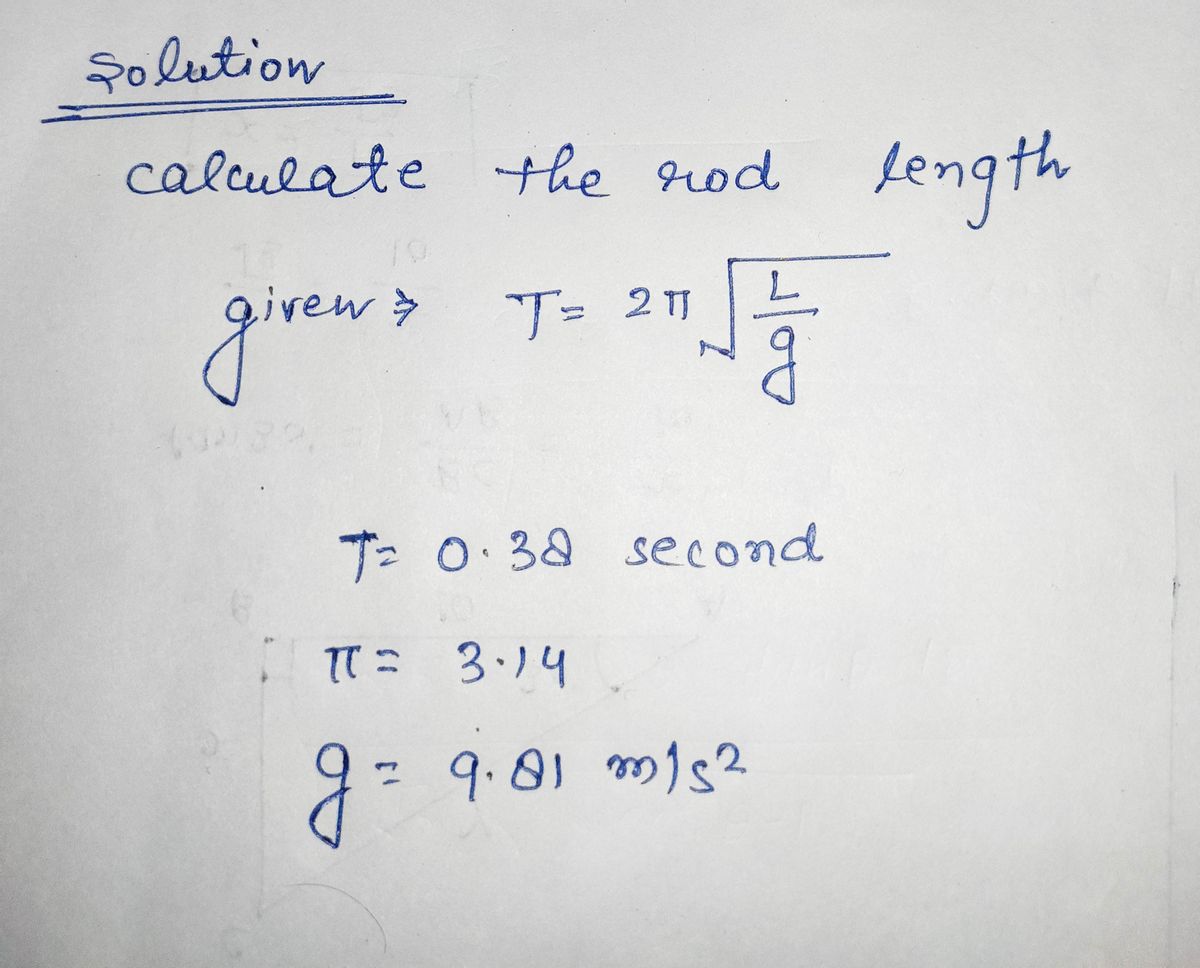 Solution
calculate the rod length
given ⇒ T = 2π √(L/g)
T = 0.38 second
π = 3.14
g = 9.81 m/s²